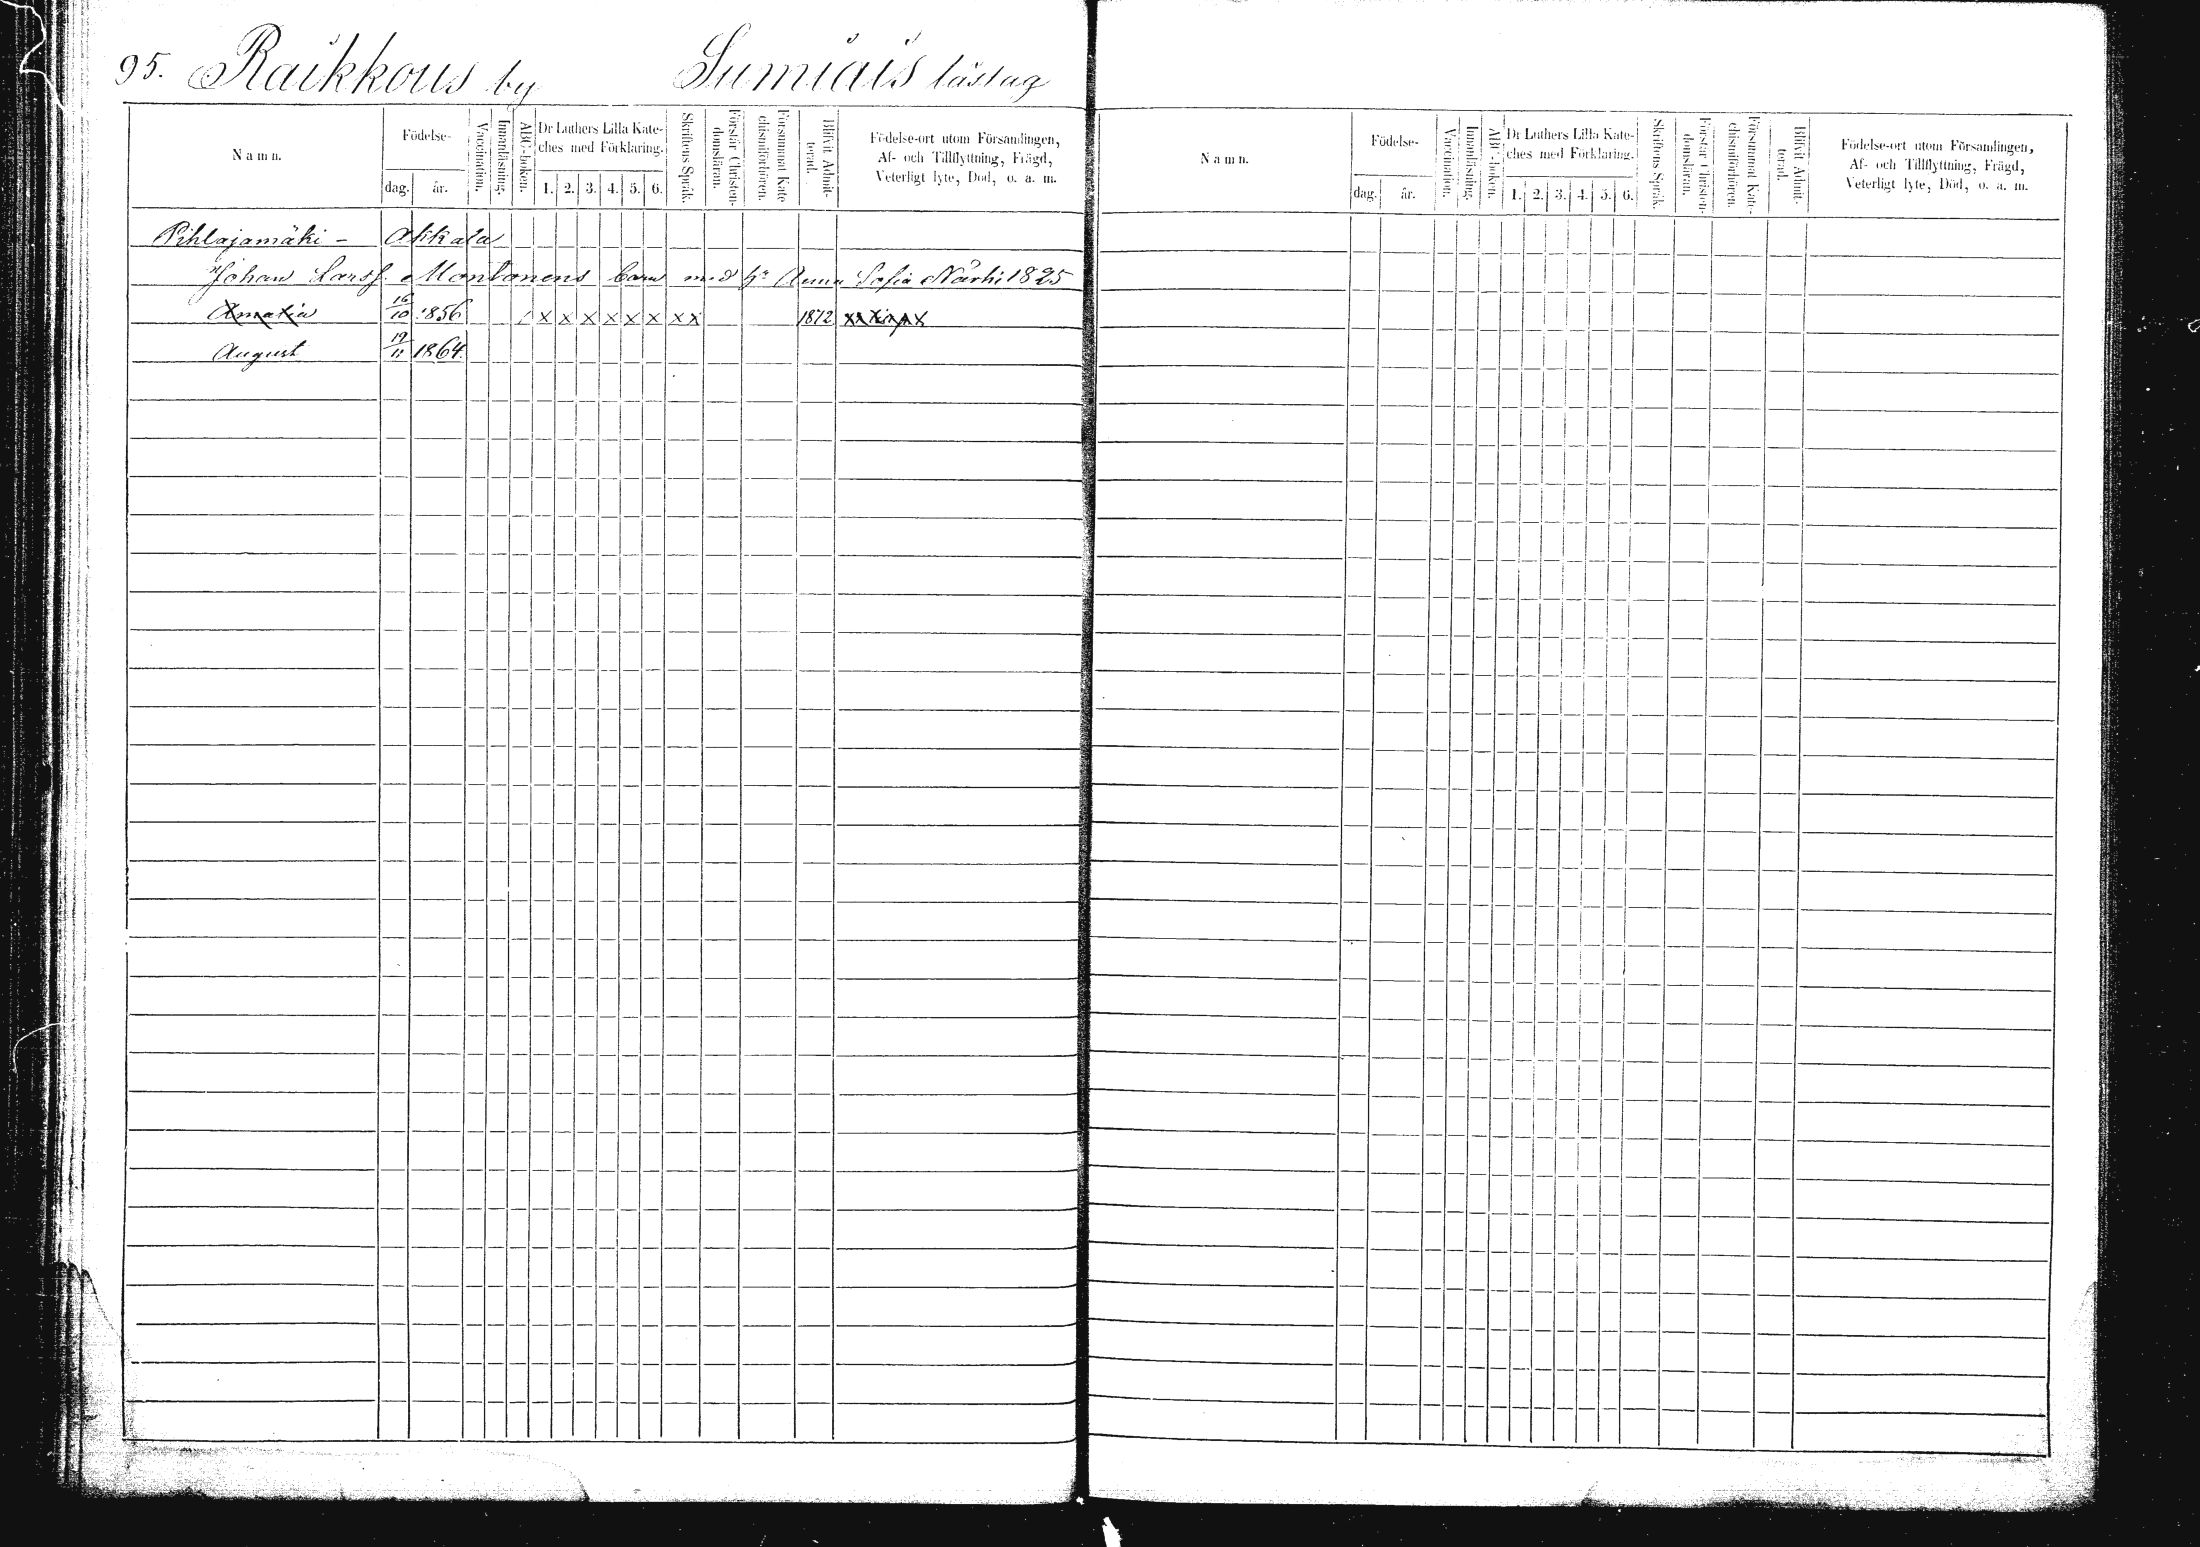 95. Raikkous by Sumiais läslag
Namn.
Födelse-
dag. år.
Vaccination.
Innanläsning.
ABC-boken.
Dr Luthers Lilla Kate-
ches med Förklaring.
1. 2. 3. 4. 5. 6.
Skriftens Språk.
Förstår Christen-
domsläran.
Försummat Kate-
chismiförhören.
Blifvit Admit-
terad.
Födelse-ort utom Församlingen,
Af- och Tillflyttning, Frägd,
Veterligt lyte, Död, o. a. m.
Pihlajamäki - Akkala
Johan Larsf. Montonens barn med h. Anna Sofia Närhi 1825
Amalia 16/10 1856 x x x x x x x x 1872
August 19/11 1864.
Namn.
Födelse-
dag. år.
Vaccination.
Innanläsning.
ABC-boken.
Dr Luthers Lilla Kate-
ches med Förklaring.
1. 2. 3. 4. 5. 6.
Skriftens Språk.
Förstår Christen-
domsläran.
Försummat Kate-
chismiförhören.
Blifvit Admit-
terad.
Födelse-ort utom Församlingen,
Af- och Tillflyttning, Frägd,
Veterligt lyte, Död, o. a. m.